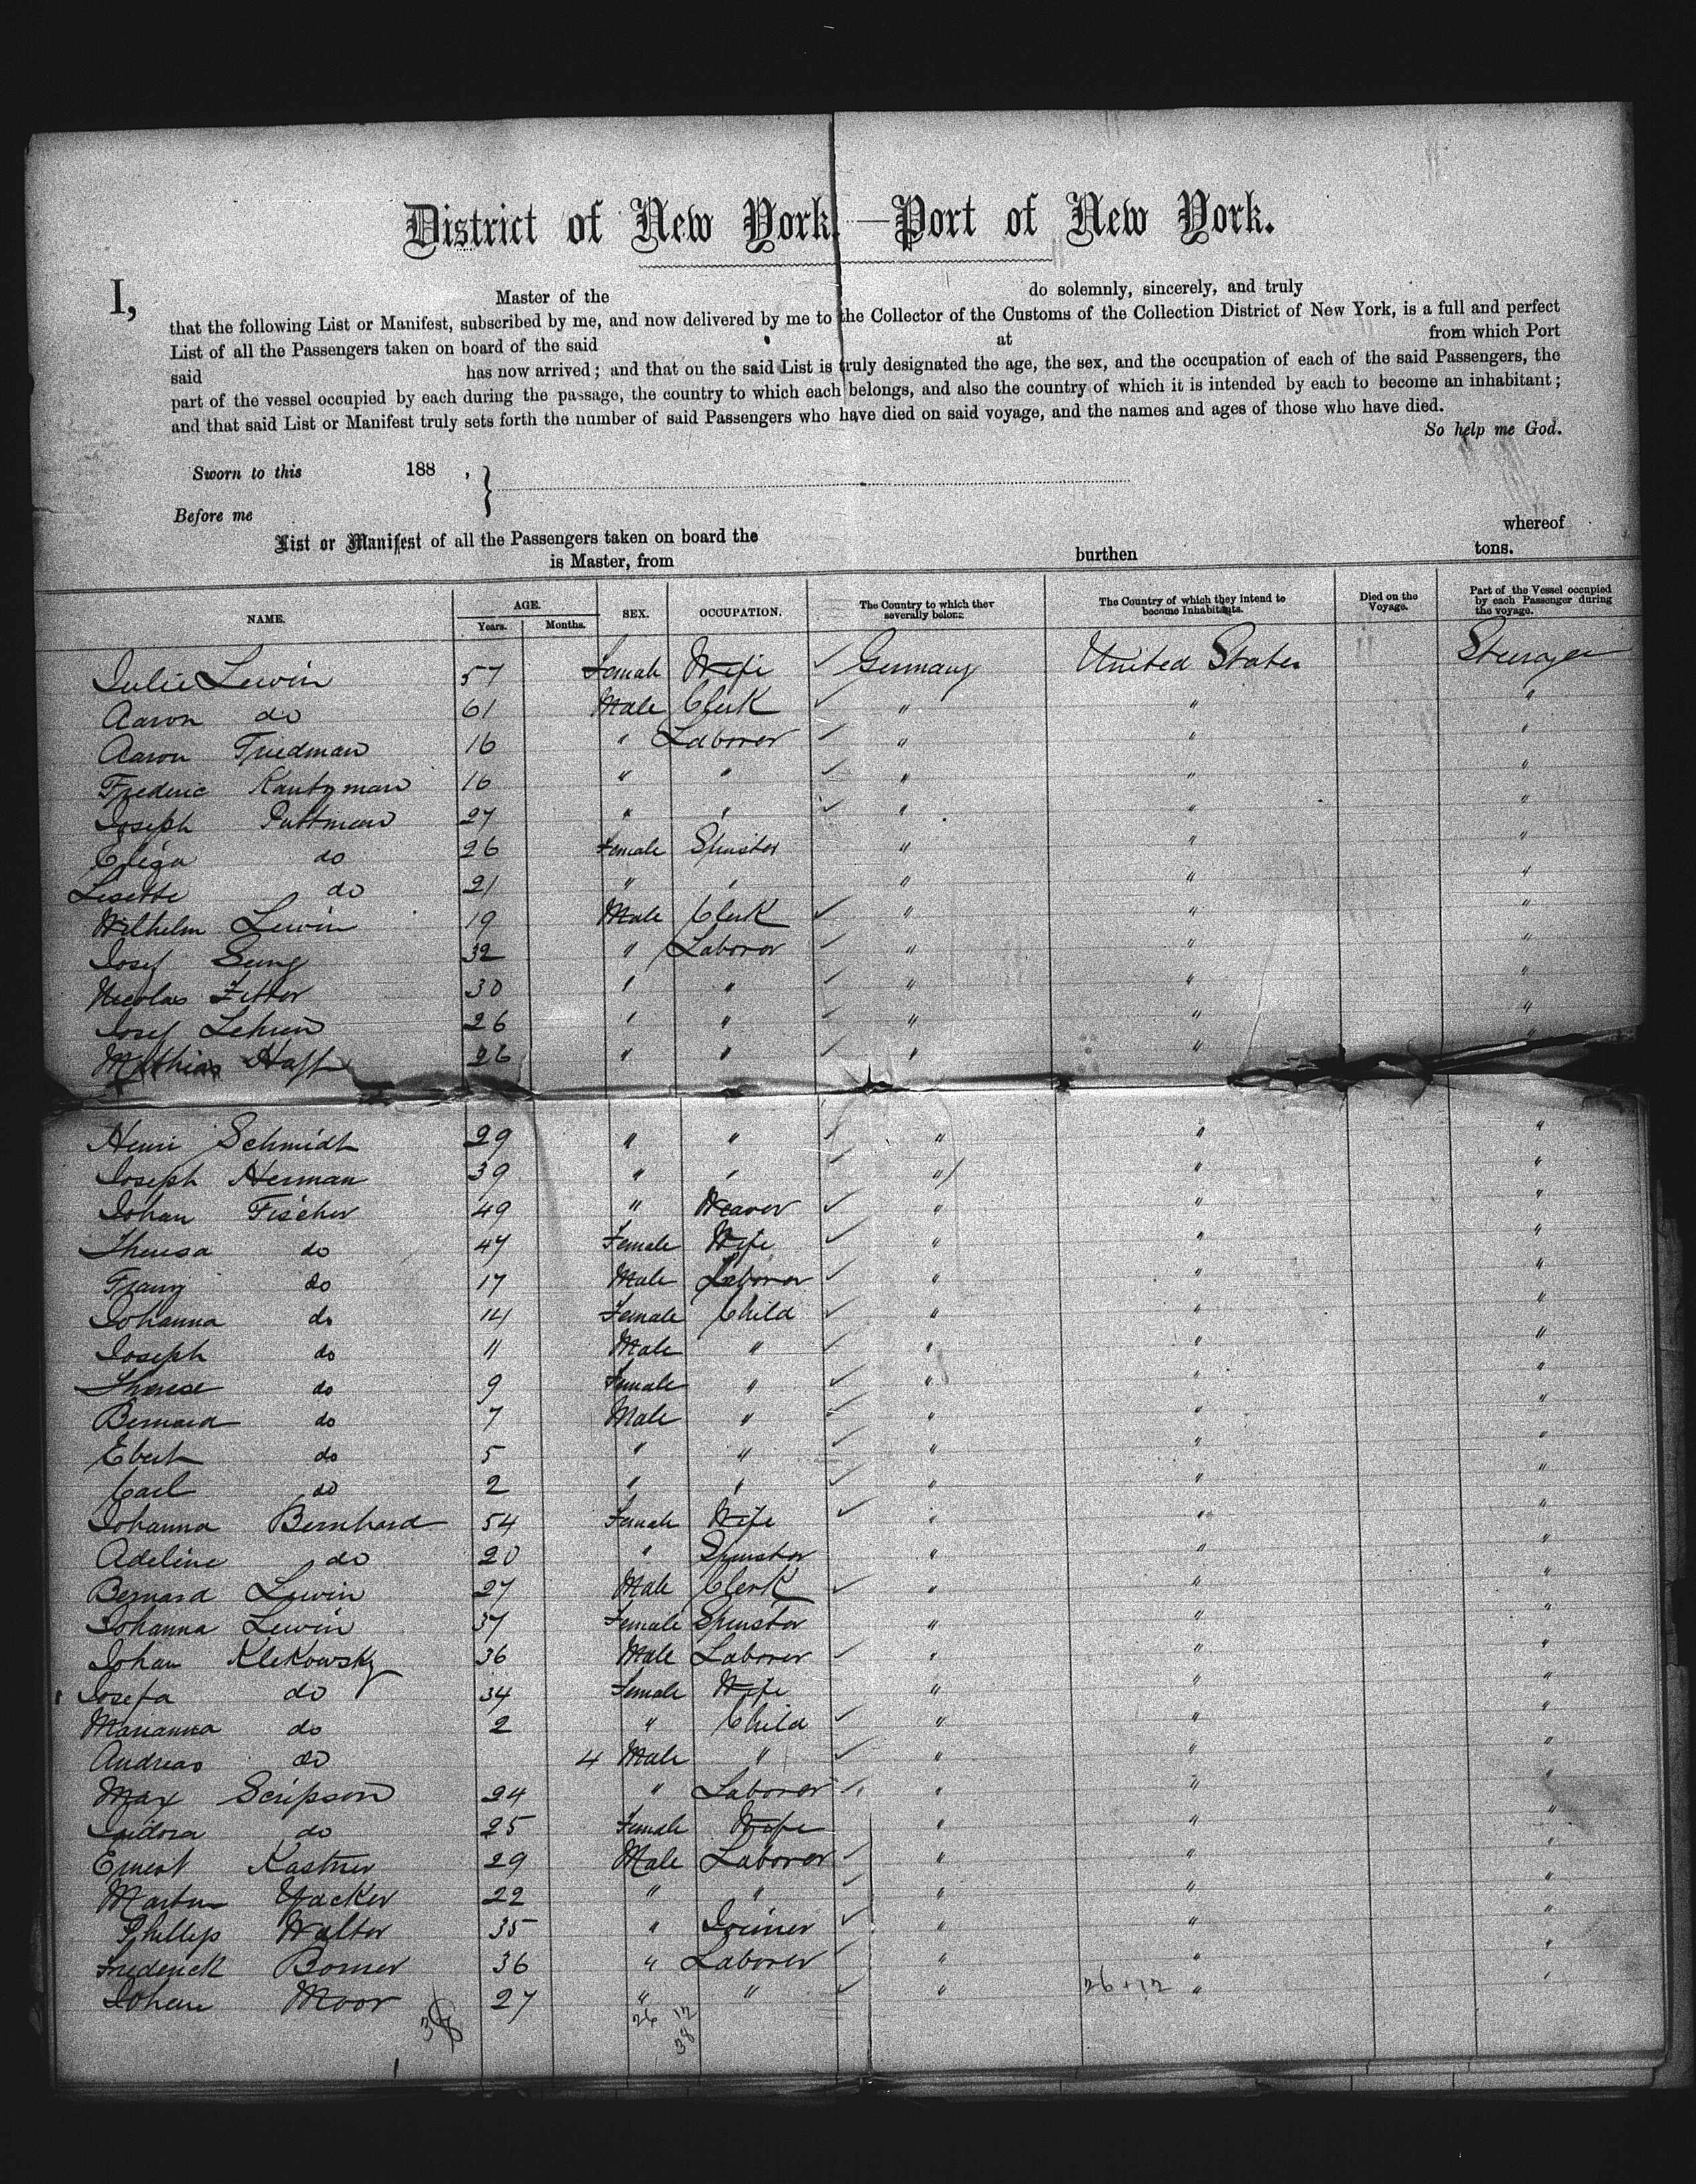 District of New York.—Port of New York.
I, Master of the do solemnly, sincerely, and truly
that the following List or Manifest, subscribed by me, and now delivered by me to the Collector of the Customs of the Collection District of New York, is a full and perfect
List of all the Passengers taken on board of the said at from which Port
said has now arrived; and that on the said List is truly designated the age, the sex, and the occupation of each of the said Passengers, the
part of the vessel occupied by each during the passage, the country to which each belongs, and also the country of which it is intended by each to become an inhabitant;
and that said List or Manifest truly sets forth the number of said Passengers who have died on said voyage, and the names and ages of those who have died.
So help me God.
Sworn to this 188 ,
Before me
List or Manifest of all the Passengers taken on board the whereof
is Master, from burthen tons.
NAME. AGE. Years. Months. SEX. OCCUPATION. The Country to which they severally belong. The Country of which they intend to become Inhabitants. Died on the Voyage. Part of the Vessel occupied by each Passenger during the voyage.
Julie Lewin 57 Female Wife ✓ Germany United States Steerage
Aaron do 61 Male Clerk ✓ " " "
Aaron Friedman 16 " Laborer ✓ " " "
Frederic 16 " " ✓ " " "
Joseph Puttman 27 " " ✓ " " "
do 26 Female Spinster " " "
Lisette do 21 " " " " "
Wilhelm Lewin 19 Male Clerk ✓ " " "
Josef 32 " Laborer ✓ " " "
Nicolas 30 " " ✓ " " "
Josef 26 " " ✓ " " "
Mathias Haff 26 " " ✓ " " "
Henri Schmidt 29 " " ✓ " " "
Joseph Herman 39 " " ✓ " " "
Johan Fischer 49 " Weaver ✓ " " "
Theresa do 47 Female Wife ✓ " " "
Franz do 17 Male Laborer ✓ " " "
Johanna do 14 Female Child ✓ " " "
Joseph do 11 Male " ✓ " " "
Therese do 9 Female " ✓ " " "
Bernard do 7 Male " ✓ " " "
Ebert do 5 " " ✓ " " "
Carl do 2 " " ✓ " " "
Johanna Bernhard 54 Female Wife ✓ " " "
Adeline do 20 " Spinster " " "
Bernard Lewin 27 Male Clerk ✓ " " "
Johanna Lewin 37 Female Spinster " " "
Johan Klekowsky 36 Male Laborer ✓ " " "
Josefa do 34 Female Wife " " "
Marianna do 2 " Child ✓ " " "
Andreas do 4 Male " ✓ " " "
Max Scripson 24 " Laborer ✓ " " "
Isidora do 25 Female Wife " " "
Ernest Kastner 29 Male Laborer ✓ " " "
Martin 22 " " ✓ " " "
Phillip Walter 35 " Joiner ✓ " " "
Frederick Borner 36 " Laborer ✓ " " "
Johan Moor 27 " " ✓ " 26+12 " "
38 26 12
38